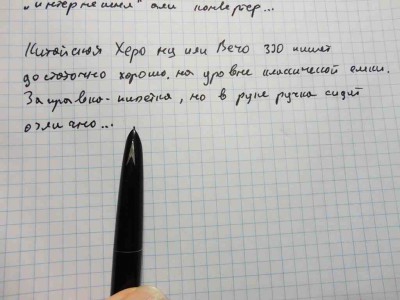 "интернешнл" али конвертер...
Китайская Херо нц или Вечо 330 пишет
достаточно хорошо, на уровне классической ёлки.
Заправка-пипетка, но в руке ручка сидит
отлично...